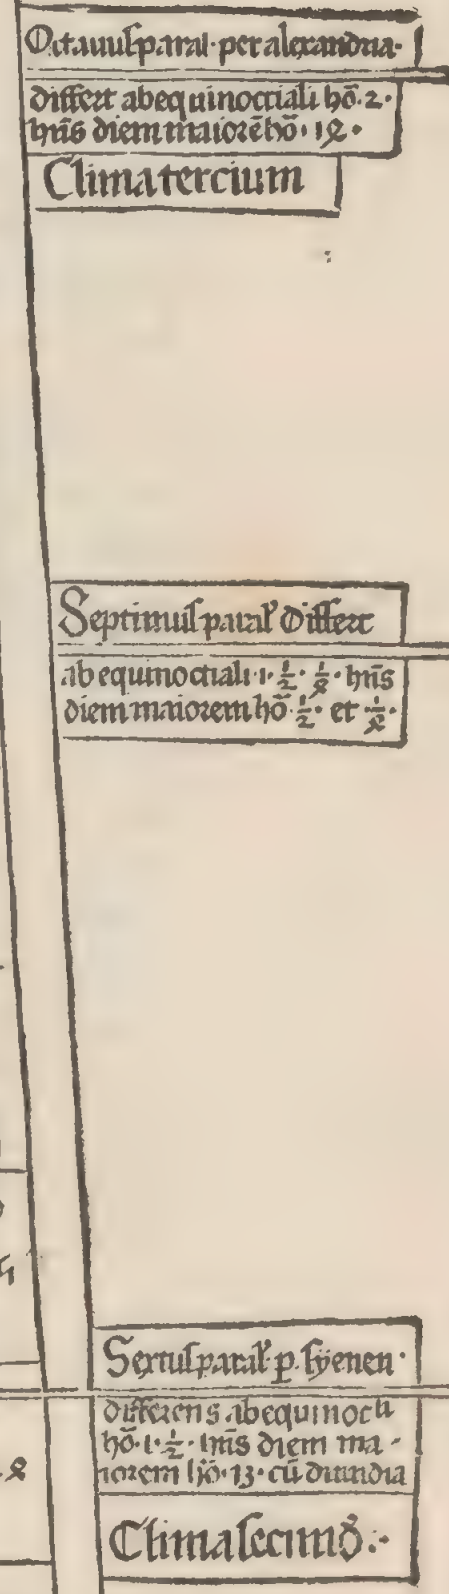 Octauus paral· per alexandria·
differt ab equinoctiali hõ· 2·
hñs diem maiorẽ hõ· 14·
Clima tercium
Septimus paral' differt
ab equinoctiali ·1· 1/2· 1/4· hñs
diem maiorem hõ· 1/2· et 1/4·
Sextus paral' p. syenen·
differens ab equinoctli
hõ·1· 1/2· hñs diem ma-
iorem hõ· 13· cũ dimidia
Clima secundũ·